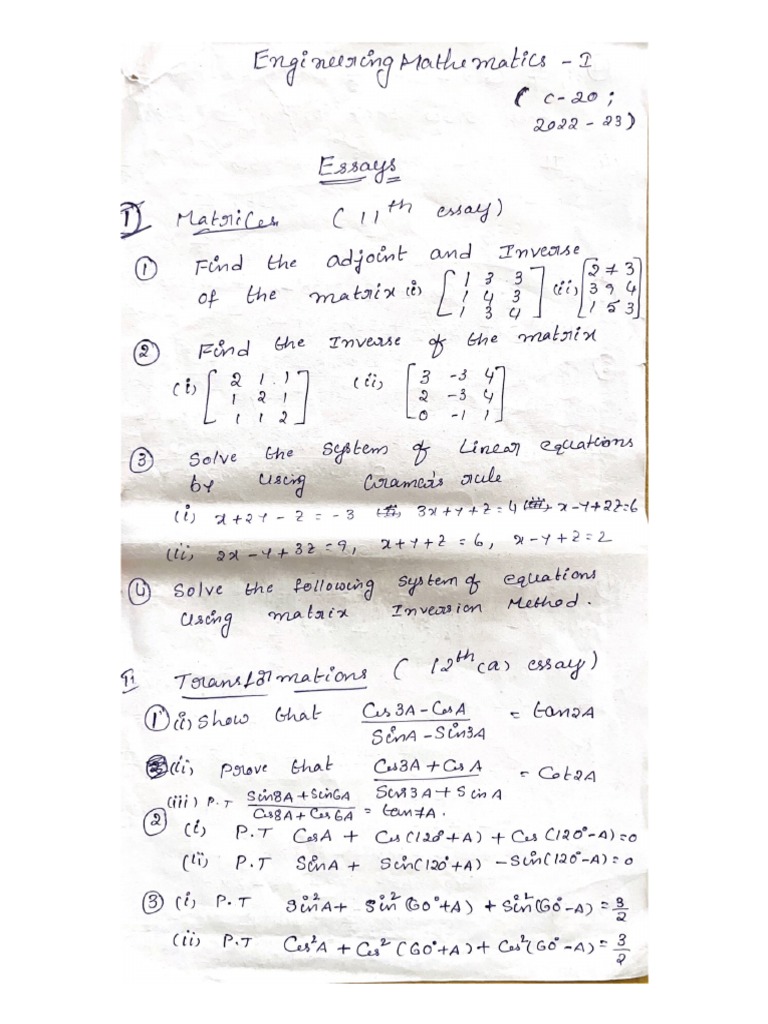 Engineering Mathematics - I
( C-20 ;
2022 - 23)
Essays
I Matrices ( 11th essay)
① Find the adjoint and Inverse
of the matrix (i) [1 3 3; 1 4 3; 1 3 4] (ii) [2 7 3; 3 9 4; 1 5 3]
② Find the Inverse of the matrix
(i) [2 1 1; 1 2 1; 1 1 2] (ii) [3 -3 4; 2 -3 4; 0 -1 1]
③ Solve the system of Linear equations
by using Cramer's rule
(i) x+2y-z=-3 3x+y+z=4 x-y+2z=6
(ii) 2x-y+3z=9, x+y+z=6, x-y+z=2
④ Solve the following system of equations
using matrix Inversion Method.
II Transformations ( 12th (a) essay)
① (i) Show that (Cos3A - CosA)/(SinA - Sin3A) = tan2A
(ii) Prove that (Cos3A + CosA)/(Sin3A + SinA) = Cot2A
(iii) P.T (Sin8A + Sin6A)/(Cos8A + Cos6A) = tan7A.
② (i) P.T CosA + Cos(120°+A) + Cos(120°-A)=0
(ii) P.T SinA + Sin(120°+A) - Sin(120°-A)=0
③ (i) P.T Sin²A + Sin²(60°+A) + Sin²(60°-A) = 3/2
(ii) P.T Cos²A + Cos²(60°+A) + Cos²(60°-A) = 3/2